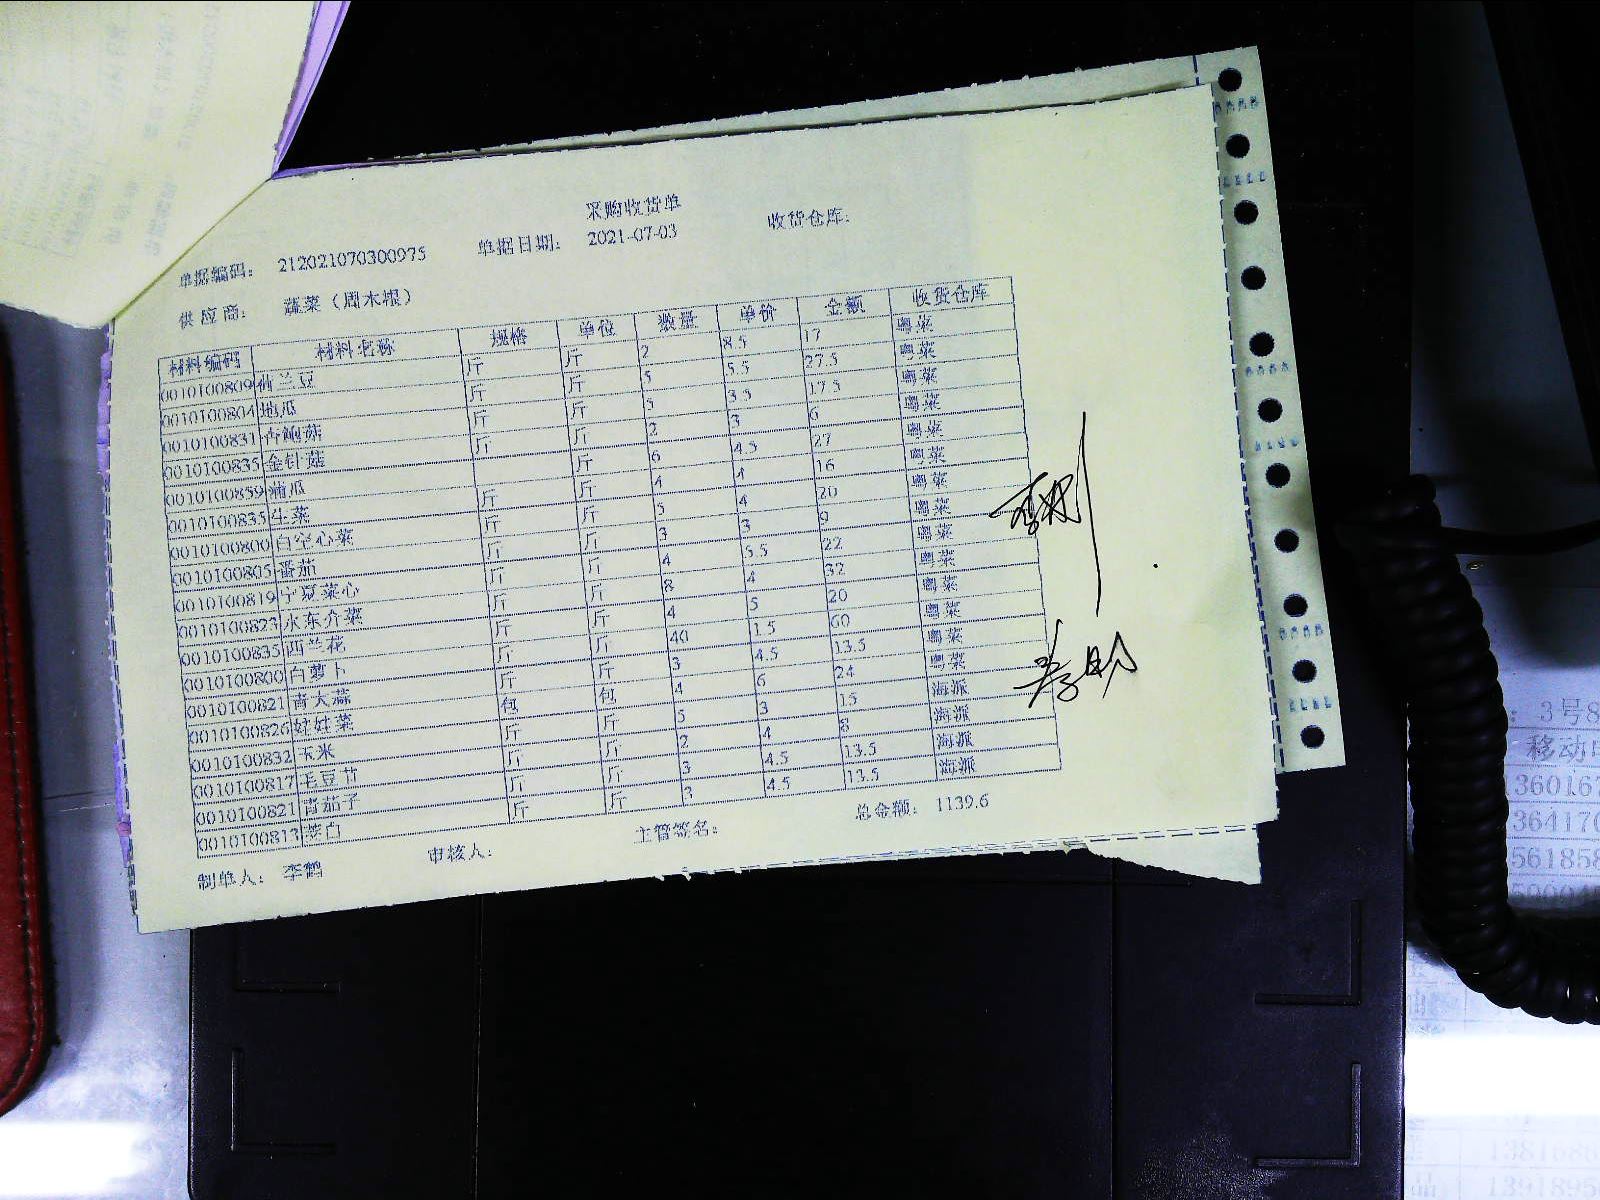 采购收货单
单据编码： 212021070300975 单据日期： 2021-07-03 收货仓库：
供应商： 蔬菜（周木根）
材料编码 材料名称 规格 单位 数量 单价 金额 收货仓库
0010100809 荷兰豆 斤 斤 2 8.5 17 粤菜
0010100804 地瓜 斤 斤 5 5.5 27.5 粤菜
0010100831 杏鲍菇 斤 斤 5 3.5 17.5 粤菜
0010100835 金针菇 斤 斤 2 3 6 粤菜
0010100859 蒲瓜 斤 6 4.5 27 粤菜
0010100835 生菜 斤 斤 4 4 16 粤菜
0010100800 白空心菜 斤 斤 5 4 20 粤菜
0010100805 番茄 斤 斤 3 3 9 粤菜
0010100819 宁夏菜心 斤 斤 4 5.5 22 粤菜
0010100823 水东介菜 斤 斤 8 4 32 粤菜
0010100835 西兰花 斤 斤 4 5 20 粤菜
0010100800 白萝卜 斤 斤 40 1.5 60 粤菜
0010100821 青大蒜 斤 斤 3 4.5 13.5 粤菜
0010100826 娃娃菜 包 包 4 6 24 粤菜
0010100832 玉米 斤 斤 5 3 15 海派
0010100817 毛豆节 斤 斤 2 4 8 海派
0010100821 青茄子 斤 斤 3 4.5 13.5 海派
0010100813 茭白 斤 斤 3 4.5 13.5 海派
制单人： 李鹤 审核人： 主管签名： 总金额： 1139.6
：3号8
移动
136016
136417
56185